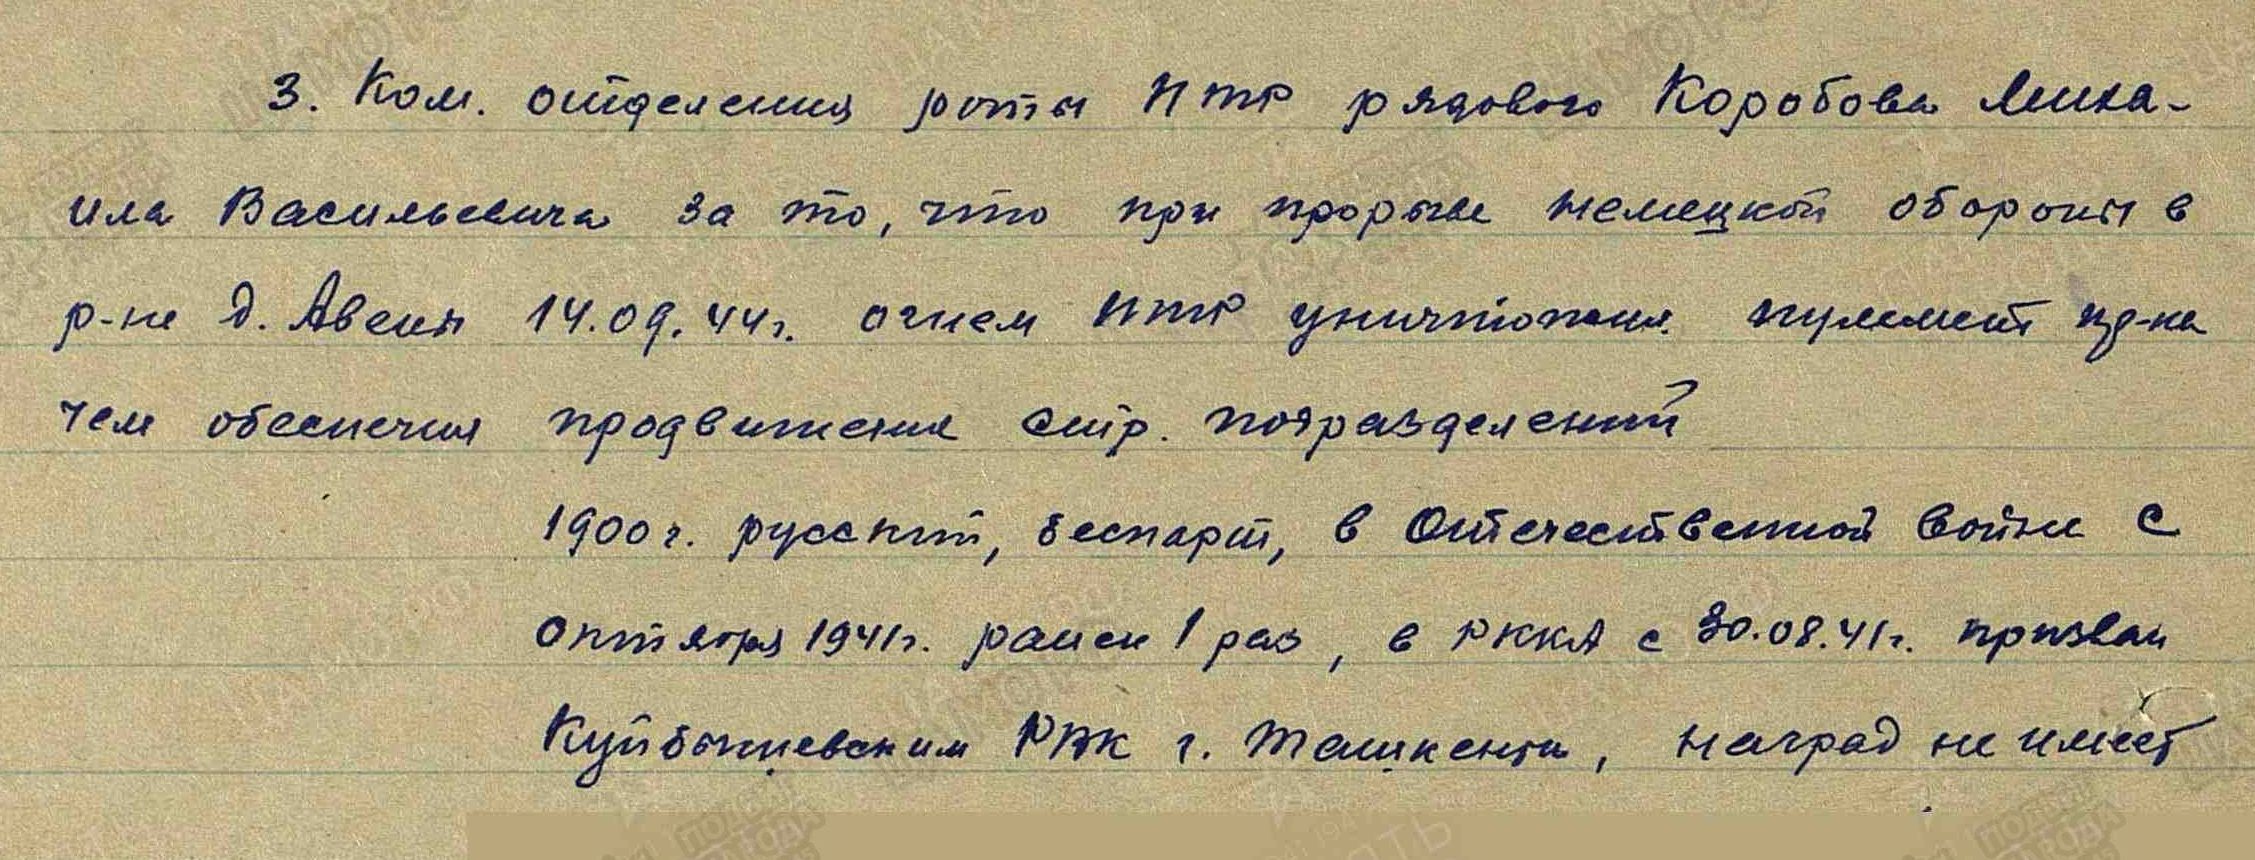 3. Ком. отделения роты ПТР рядового Коробова Миха-
ила Васильевича за то, что при прорыве немецкой обороны в
р-не д. Авены 14.09.44г. огнем ПТР уничтожил пулемет пр-ка
чем обеспечил продвижения стр. подразделений
1900г. русский, беспарт, в Отечественной войне с
октября 1941г. ранен 1 раз, в РККА с 30.08.41г. призван
Куйбышевским РВК г. Ташкента, наград не имеет